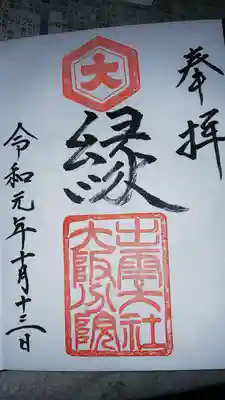 奉拝
大
縁
出雲大社
大阪分院
令和元年十月十三日